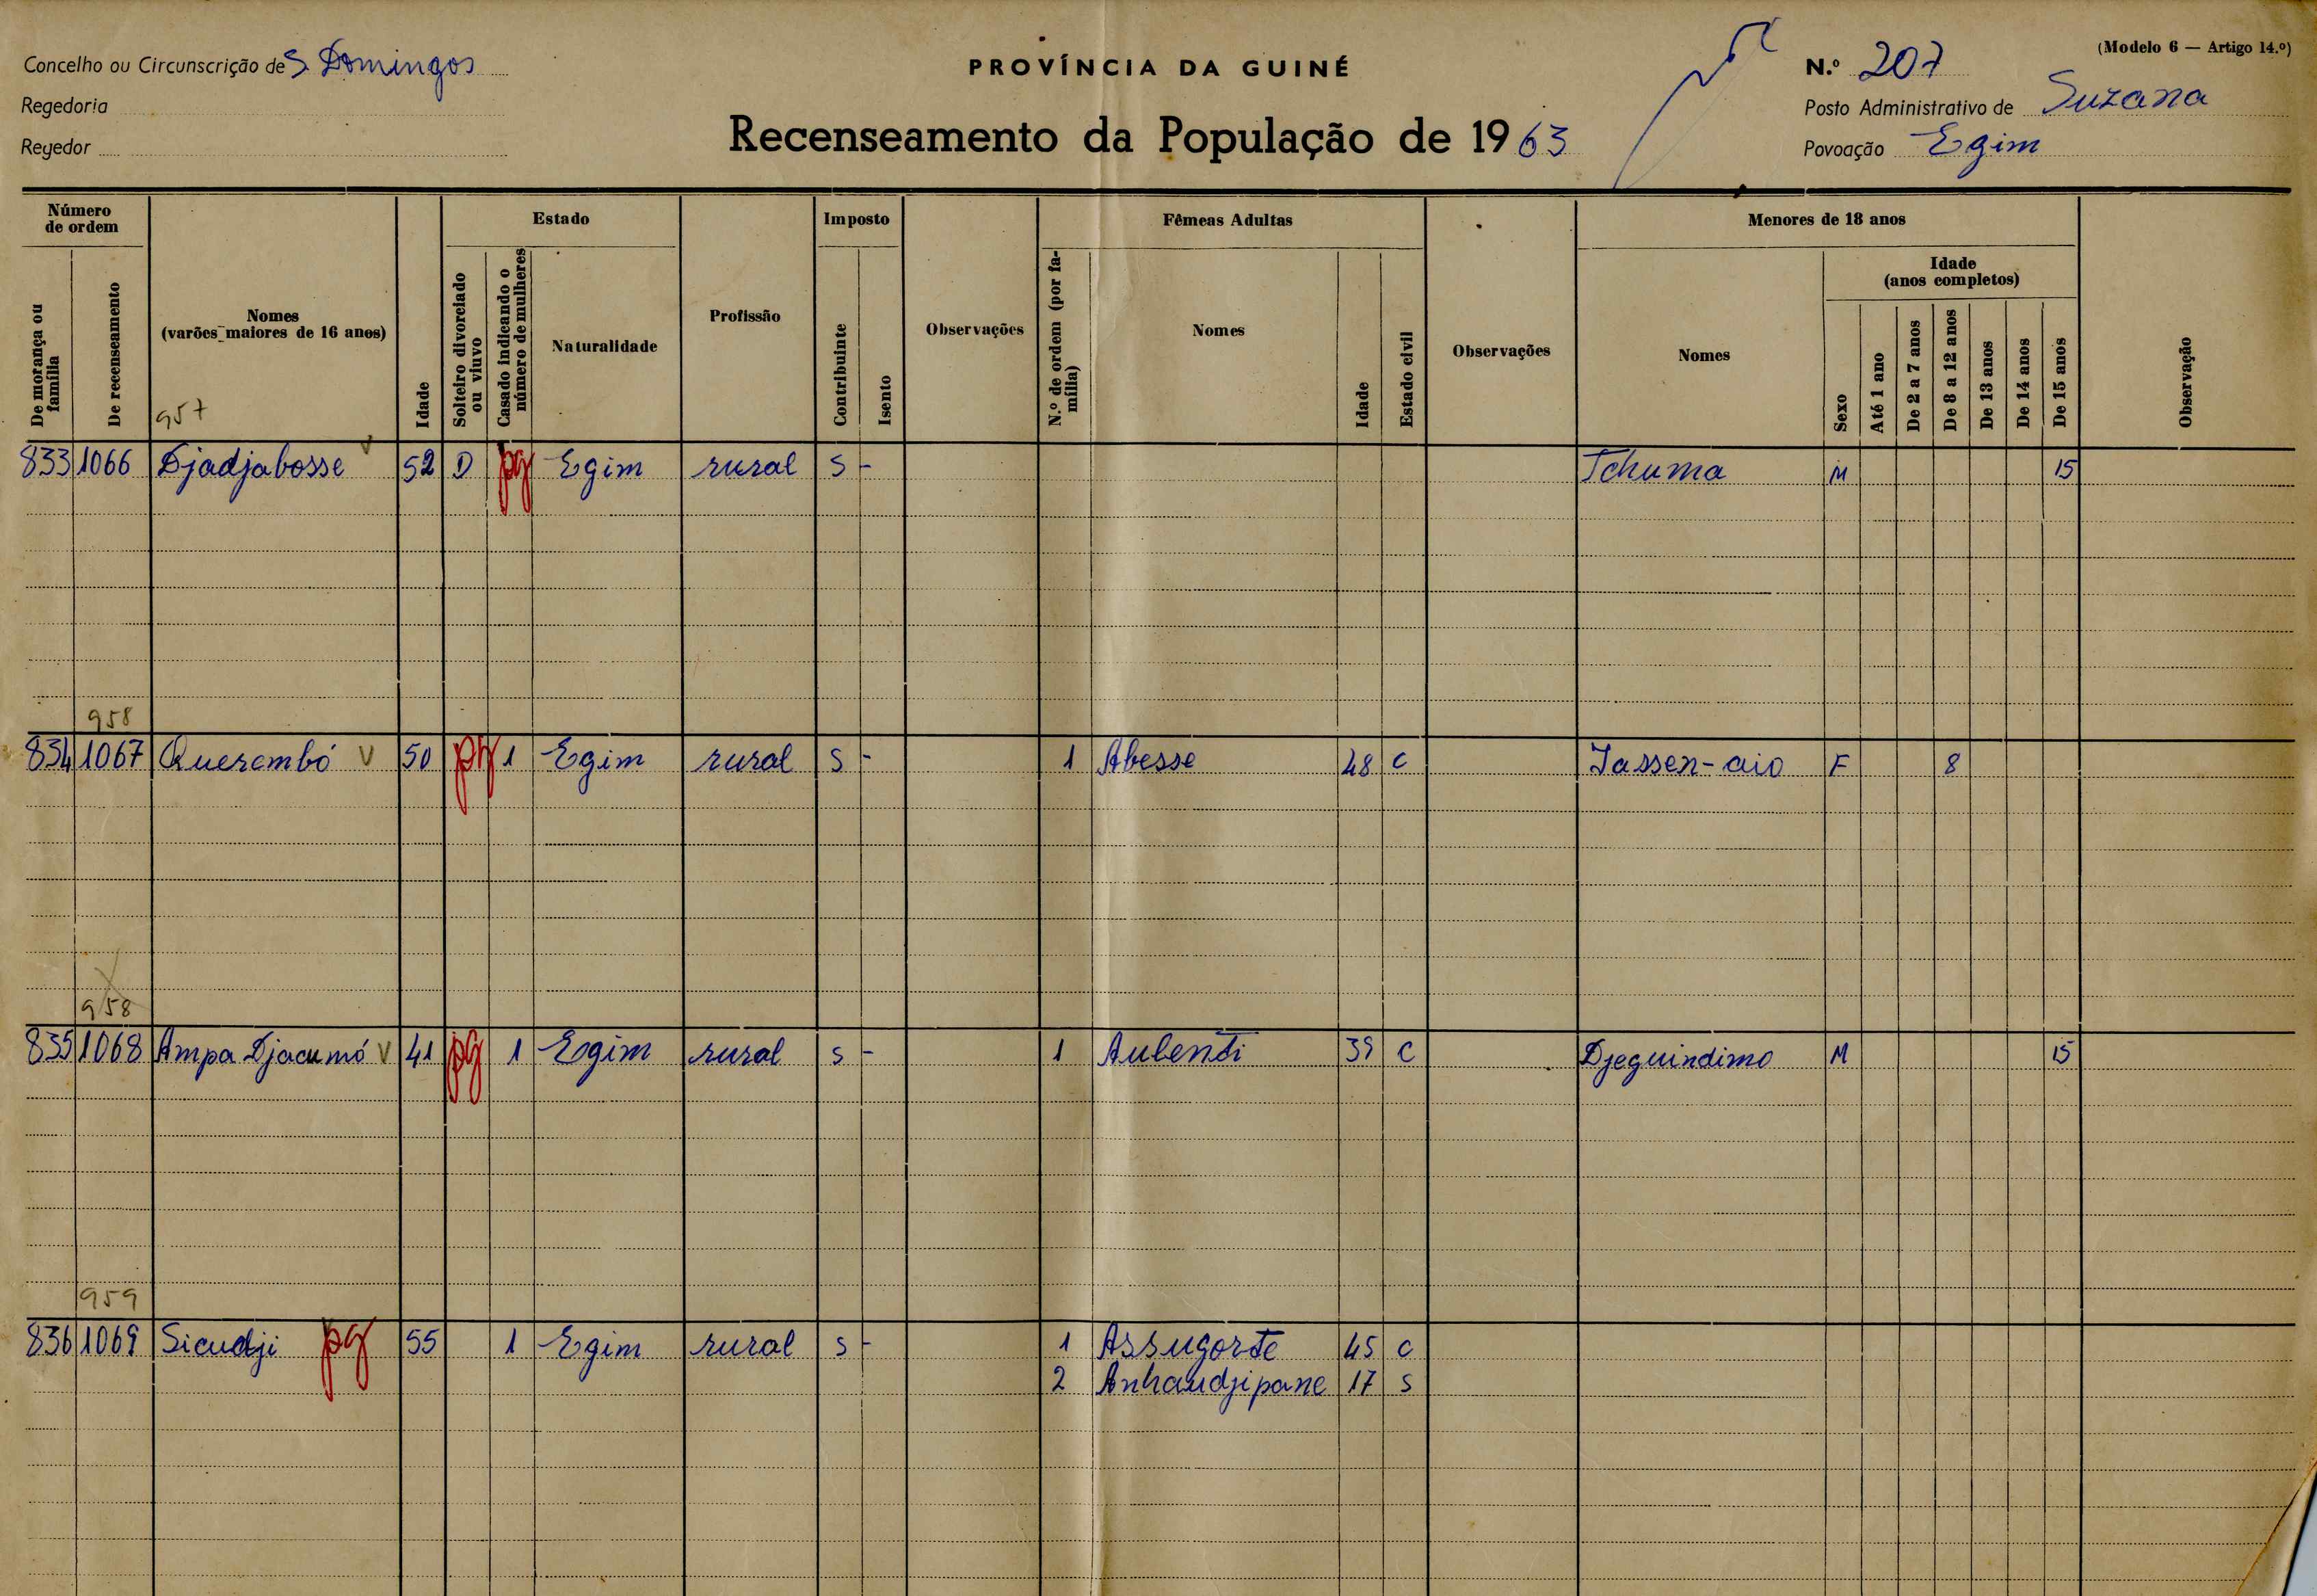 (Modelo 6 — Artigo 14.º)
Concelho ou Circunscrição de S. Domingos
PROVÍNCIA DA GUINÉ
N.º 207
Regedoria
Posto Administrativo de Suzana
Recenseamento da População de 1963
Regedor
Povoação Egim
Número de ordem
Estado
Imposto
Fêmeas Adultas
Menores de 18 anos
De morança ou família
De recenseamento
Nomes
(varões maiores de 16 anos)
Idade
Solteiro divorciado ou viuvo
Casado indicando o número de mulheres
Naturalidade
Profissão
Contribuinte
Isento
Observações
N.º de ordem (por família)
Nomes
Idade
Estado civil
Observações
Nomes
Sexo
Idade
(anos completos)
Até 1 ano
De 2 a 7 anos
De 8 a 12 anos
De 13 anos
De 14 anos
De 15 anos
Observação
957
833 1066 Djadjabosse V 52 D pg Egim rural S - Tchuma M 15
958
834 1067 Querembó V 50 pg 1 Egim rural S - 1 Abesse 48 C Jassen-aio F 8
958
835 1068 Ampa Djacumó V 41 pg 1 Egim rural S - 1 Aubenti 39 C Djeguindimo M 15
959
836 1069 Sicudji pg 55 1 Egim rural S - 1 Assugorte 45 C
2 Anhaudjipane 17 S